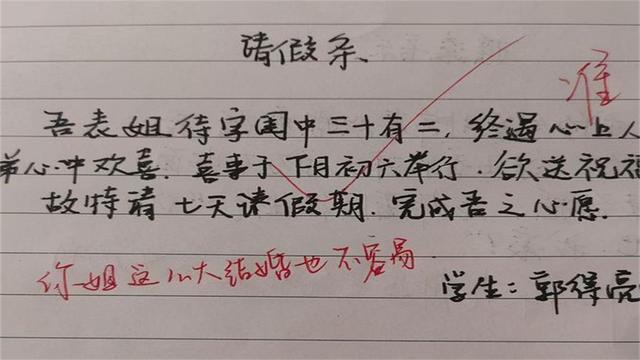 请假条
准
吾表姐待字闺中三十有二,终遇心上人
弟心中欢喜.喜事于下月初六举行.欲送祝福
故特请七天请假期.完成吾之心愿.
你姐这么大结婚也不容易
学生:郭得亮